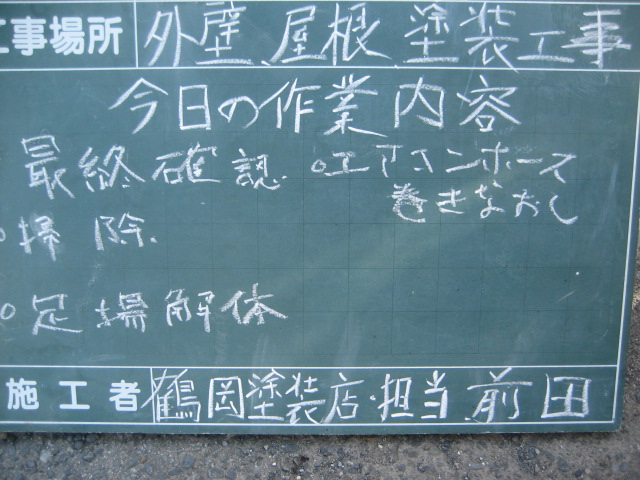 工事場所 外壁、屋根、塗装工事
今日の作業内容
最終確認 ○エアコンホース
巻きなおし
○掃除
○足場解体
施工者 鶴岡塗装店・担当 前田